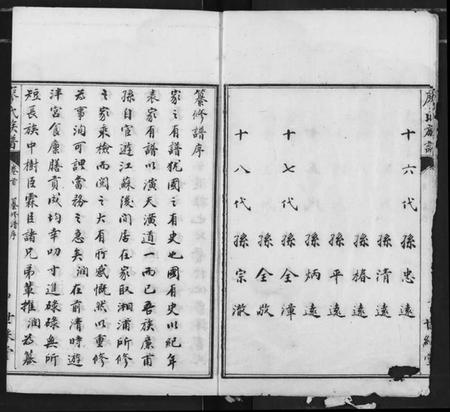 十六代孫忠遠
孫清遠
孫椿遠
孫平遠
孫炳遠
十七代孫全渾
孫全敬
十八代孫宗澈
纂修譜序
家之有譜猶國之有史也國有史以紀年
表家有譜以演天潢道一而已吾族廉甫
孫自宦遊江蘇後间居在家取湘浦所修
之家乘檢而閱之大有所感慨然以重修
為事润可謂當務之急矣润在前清時遊
泮宮食廩膳貢成均幸叨寸進碌碌無所
短長族中樹臣霖臣諸兄弟輩推润為纂
氏族譜
卷首
纂修譜序